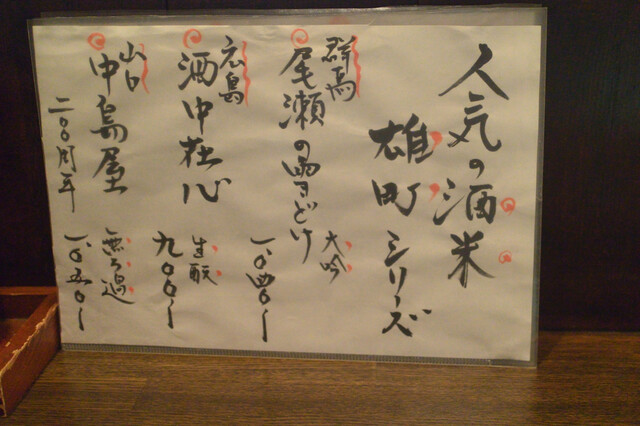 人気の酒米
雄町シリーズ
群馬
尾瀬の雪どけ
大吟
一、〇四〇〜
広島
酒中在心
生酛
九〇〇〜
山口
中島屋
二〇周年
無ろ過
一、〇五〇〜